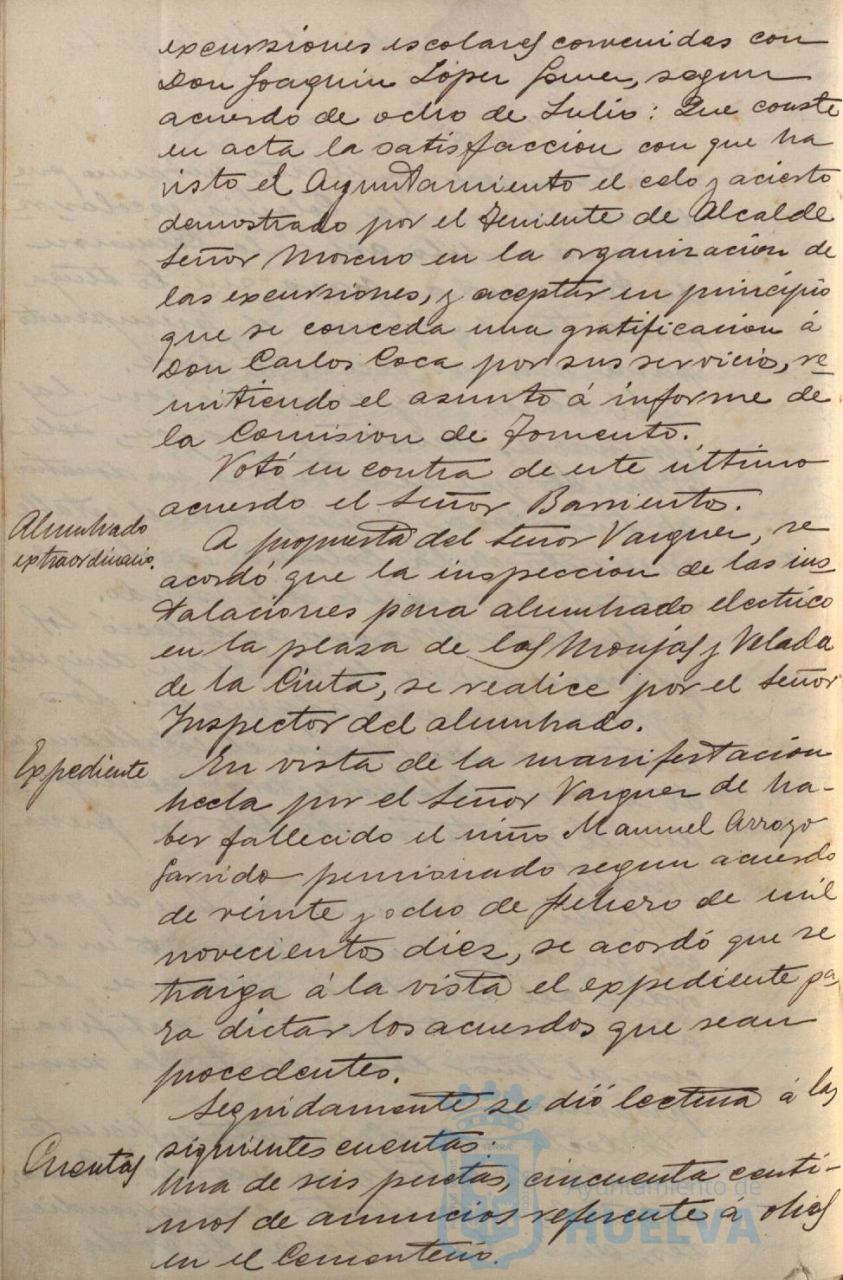 excursiones escolares convenidas con
Don Joaquin López Gomez, segun
acuerdo de ocho de Julio: Que conste
en acta la satisfaccion con que ha
visto el Ayuntamiento el celo y acierto
demostrado por el Teniente de Alcalde
Señor Moreno en la organizacion de
las excursiones, y aceptar en principio
que se conceda una gratificacion á
Don Carlos Coca por sus servicios, re-
mitiendo el asunto á informe de
la Comision de Fomento.
Votó en contra de este último
acuerdo el Señor Barrientos.
Alumbrado
extraordinario.
A propuesta del Señor Vazquez, se
acordó que la inspeccion de las ins
talaciones para alumbrado electrico
en la plaza de las Monjas y Velada
de la Cinta, se realice por el Señor
Inspector del alumbrado.
Expediente
En vista de la manifestacion
hecha por el Señor Vazquez de ha-
ber fallecido el niño Manuel Arroyo
Garrido pensionado segun acuerdo
de veinte y ocho de febrero de mil
novecientos diez, se acordó que se
traiga á la vista el expediente pa
ra dictar los acuerdos que sean
procedentes.
Seguidamente se dió lectura á las
Cuentas
siguientes cuentas:
Una de seis pesetas, cincuenta centi-
mos de anuncios referente á obras
en el Cementerio.
Ayuntamiento de
HUELVA